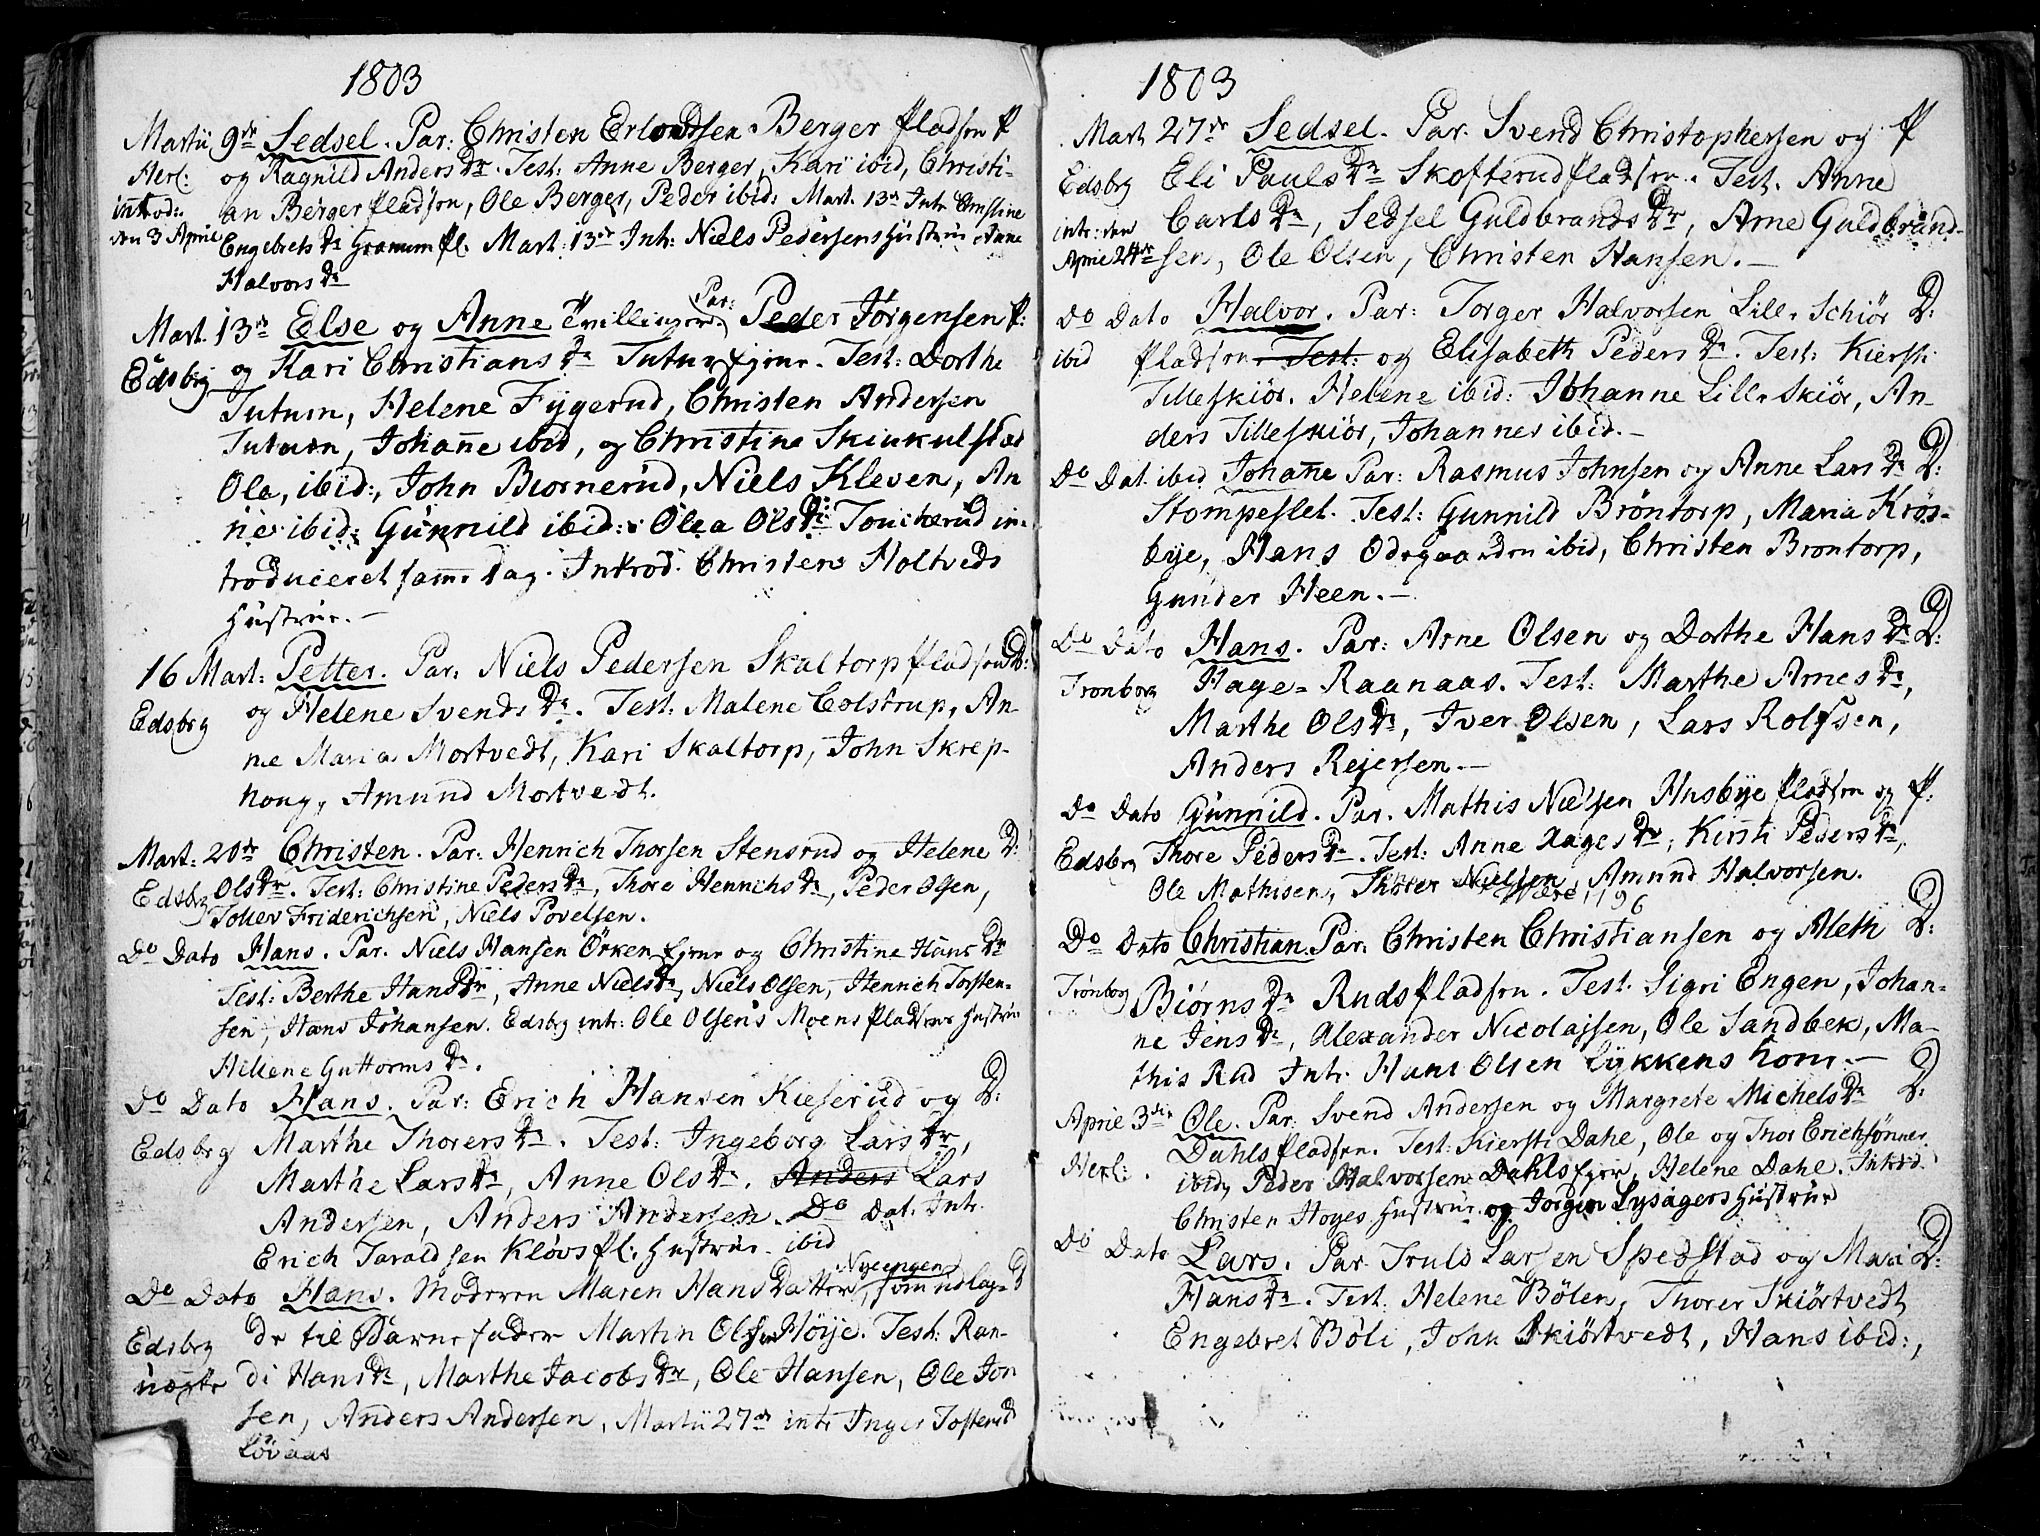 1803
Martii 9de Sedsel. Par: Christen Erlandsen Berger pladsen P
Herl: og Ragnild Anders Dr. Test: Anne Berger, Kari ibid, Christi-
introd: an Berger pladsen, Ole Berger, Peder ibid: Mart. 13de Intr. Ernstine
den 3 April Engebrets Dr Granum pl. Mart: 13de Int: Niels Pedersens Hustrue Anne
Halvors Dr
Mart. 13de Else og Anne Tvillinger. Par: Peder Jörgensen P:
Edsberg og Kari Christians Dr Tutur Ejene. Test: Dorthe
Tuturn, Helene Fÿgerud, Christen Andersen
Tuturn, Johañe ibid, og Christina Skinkulstad
Ola, ibid:, John Biornerud, Niels Kleven, An
ne ibid: Gunnild ibid: Olea Ols Dr Toucherud in-
troduceret samme Dag. Introd. Christen Holtveds
Hustrue. —
16 Mart: Petter. Par. Niels Pedersen Skaltorp pladsen D:
Edsberg og Helene Svends Dr. Test: Malene Colstrup, An-
ne Maria Mortvedt, Kari Skaltorp, John Skrep-
houg, Amund Mortvedt.
Mart: 20de Christen. Par: Henrich Thorsen Stensrud og Helene D:
Edsberg Ols Dr. Test: Christine Peders Dr, Thore Henrichs Dr, Peder Olsen,
Tollev Friderichsen, Niels Povelsen.
Do Dato Hans. Par. Niels Hansen Örken Ejene og Christine Hans Dr
Test: Berthe Hans Dr, Anne Niels Dr, Niels Olsen, Henrich Torsten-
sen, Hans Johansen. Edsberg intr: Ole Olsens Moens pladsens Hustrue
Hilene Guttorms Dr.
Do Dato Hans. Par: Erich Hansen Kieserud og D:
Edsberg Marthe Thorers Dr. Test: Ingeborg Lars Dr,
Marthe Lars Dr, Anne Ols Dr. Anders Lars
Andersen, Anders Andersen. Do Dat. Intr.
Erich Taraldsen Klövs pl: Hustrue ibid
Do Dato Hans. Moderen Maren Hans Datter Nyeengen, som udlag- D
Edsberg de til Barnefader Martin Olsen Höije. Test: Ran-
uægte di Hans Dr, Marthe Jacobs Dr, Ole Hansen, Ole Jon
sen, Anders Andersen, Martii 27de intr Inger Tostens Dr
Lövaas
1803
Mart 27de Sedsel. Par. Svend Christophersen og P
Edsberg Eli Pauls Dr Skofterud pladsen. Test. Anne
intr: den Carls Dr, Sedsel Guldbrands Dr, Arne Guldbrand-
Aprie 24de sen, Ole Olsen, Christen Hansen. —
Do Dato Halvor. Par: Torger Halvorsen Lille Schiör D:
ibid pladsen Test: og Elisabeth Peders Dr. Test: Kiersti
Lilleskiör. Helene ibid: Johanne Lille Skiör, An-
ders Lilleskiör, Johannes ibid. —
Do Dat. ibid Johañe Par: Rasmus Johnsen og Anne Lars Dr D:
Stompeslet. Test: Gunnild Bröntorp, Maria Krös-
bye, Hans Odegaarden ibid, Christen Brontorp,
Gunder Heen. —
Do Dato Hans. Par: Arne Olsen og Dorthe Hans Dr D:
Tronborg Hage-Raanaas. Test: Marthe Arnes Dr,
Marthe Ols Dr, Iver Olsen, Lars Rolfsen,
Anders Rejersen. —
Do Dato Gunnild. Par. Mathis Nielsen Husbÿe pladsen og P:
Edsberg Thore Peders Dr. Test: Anne Aages Dr, Kirsti Peders Dr,
Ole Mathisen, Thorer Nielsen, Amund Halvorsen.
Do Dato Christian. Par: Christen Christiansen og Aleth D:
Trönborg Biörns Dr Ruds pladsen. Test. Sigri Engen, Johan-
ne Jens Dr, Alexander Nicolajsen, Ole Sandbek, Ma-
this Rud Intr. Hans Olsen Lÿkkens Kone. —
Aprie 3die Ole. Par: Svend Andersen og Margrete Michels Dr D:
Herl: Dahls pladsen. Test: Kiersti Dahl, Ole og Thor Erichsönner
ibid, Peder Halvorsen Dahls Ejer, Helene Dahl. Introd.
Christen Hoyes Hustrue og Jorgen Lysagers Hustrue
Do Dato Lars. Par. Truls Larsen Spedstad og Mari D:
Hans Dr. Test. Helene Bölen, Thorer Skiörtvedt
Engebret Böli, John Skiörtvedt, Hans ibid:,